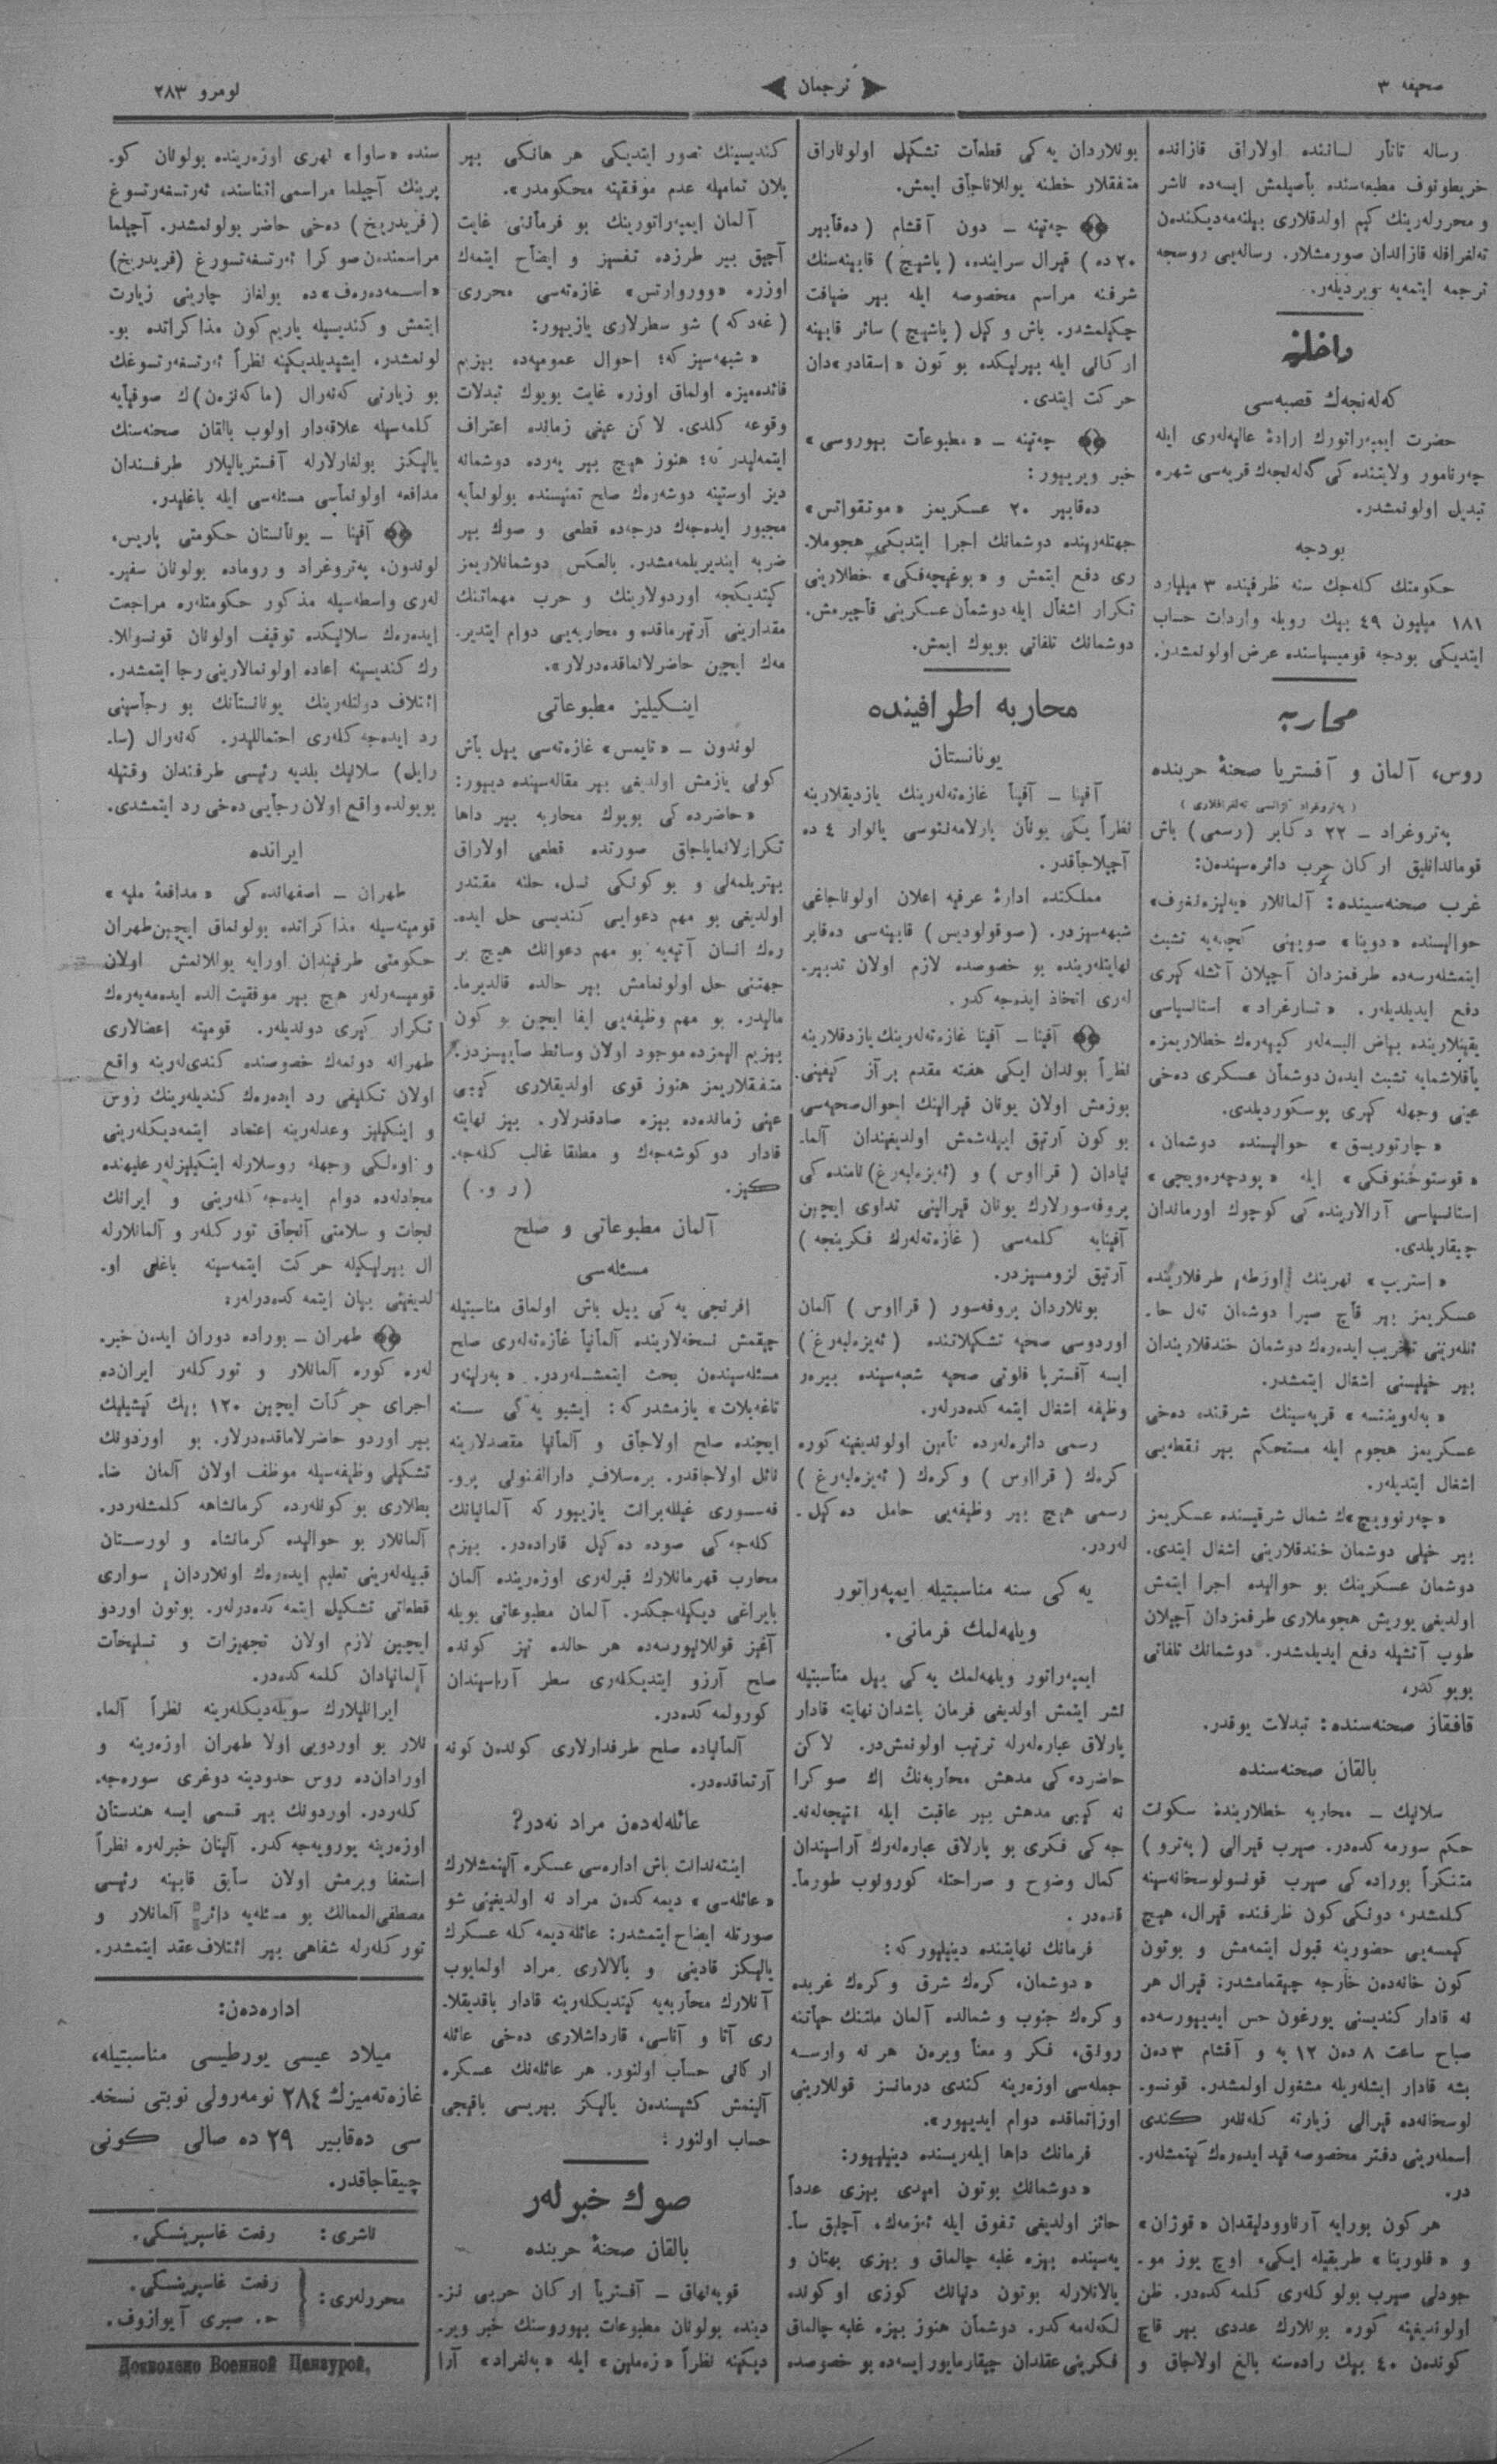 صحیفه ٣
ترجمان
نومرو ٢٨٣
رساله تاتار لساننده اولاراق قازانده
خریطونوف مطبعه‌سنده باصیلمش ایسه‌ده ناشر
و محررلەرینك کیم اولدقلاری بیلنمه‌دیکندەن
تەلغرافله قازاندان صورمشلار. رساله‌یی روسجه
ترجمه ایتمەیه ویردیلەر.
داخلیه
کەلەنجەك قصبه‌سی
حضرت ایمپەراتورك ارادۀ عالیه‌لەری ایله
چەرنامور ولایتنده کی گەلەنجەك قریه‌سی شهره
تبدیل اولونمشدر.
بودجه
حکومتك کلەجك سنه ظرفینده ٣ میلیارد
١٨١ میلیون ٤٩ بیك روبله واردات حساب
ایتدیکی بودجه قومیسیاسنده عرض اولونمشدر.
محاربه
روس، آلمان و آفستریا صحنۀ حربنده
(پەتروغراد آژانسی تەلغرافلاری)
پەتروغراد ـ ٢٢ دکابر (رسمی) باش
قوماندانلیق ارکان حرب دائره‌سیندەن:
غرب صحنه‌سینده: آلمانلار «یەلیزەنغوف»
حوالیسنده «دوینا» صوینی کچمەیه تشبث
ایتمشلەرسه‌ده طرفمزدان آچیلان آتشله کیری
دفع ایدیلدیلەر. «تسارغراد» استانسیاسی
یقینلارینده بیاض البسه‌لەر کیەرەك خطلاریمزه
یاقلاشمایه تشبث ایدەن دوشمان عسکری دەخی
عینی وجهله کیری پوسکوردیلدی.
«چارتوریسق» حوالیسنده دوشمان،
«قوستوخنوفکی» ایله «بودچەرەویچی»
استانسیاسی آرالارینده کی کوچوك اورماندان
چیقاریلدی.
«استریپ» نهرینك اورطه طرفلارینده
عسکریمز بیر قاچ صیرا دوشمان تەل حا-
ئللەرینی تخریب ایدەرەك دوشمان خندقلاریندان
بیر خیلیسنی اشغال ایتمشدر.
«بەلەوینتسه» قریه‌سینك شرقنده دەخی
عسکریمز هجوم ایله مستحکم بیر نقطه‌یی
اشغال ایتدیلەر.
«چەرنوویچ»ك شمال شرقیسنده عسکریمز
بیر خیلی دوشمان خندقلارینی اشغال ایتدی.
دوشمان عسکرینك بو حوالیده اجرا ایتمش
اولدیغی یوریش هجوملاری طرفمزدان آچیلان
طوپ آتشیله دفع ایدیلمشدر. دوشمانك تلفاتی
بویوکدر.
قافقاز صحنه‌سنده: تبدلات یوقدر.
بالقان صحنه‌سنده
سلانیك ـ محاربه خطلارینده سکونت
حکم سورمەکدەدر. صرب قیرالی (پەترو)
متنکراً بوراده کی صرب قونسولوسخانه‌سینه
کلمشدر، دونکی کون ظرفنده قیرال، هیچ
کیمسه‌یی حضورینه قبول ایتمەمش و بوتون
کون خانەدەن خارجه چیقمامشدر: قیرال هر
نه قادار کندیسنی یورغون حس ایدییورسه‌ده
صباح ساعت ٨ دەن ١٢ یه و آقشام ٣ دەن
بشه قادار ایشلەریله مشغول اولمشدر. قونسو-
لوسخانەده قیرالی زیارته کلەنلەر کندی
اسملەرینی دفتر مخصوصه قید ایدەرەك کیتمشلەر-
در.
هر کون بورایه آرناوودلیقدان «قوژان»
و «فلورینا» طریقیله ایکی، اوچ یوز مو-
جودلی صرب بولوکلەری کلمەکدەدر. ظن
اولوندیغینه کوره بونلارك عددی بیر قاچ
کوندەن ٤٠ بیك رادەسنه بالغ اولاجاق و
بونلاردان یەکی قطعات تشکیل اولوناراق
متفقلار خطنه یوللاناجاق ایمش.
چەتینه ـ دون آقشام (دەقابیر
٢٠ ده) قیرال سراینده، (یاشیچ) قابینه‌سنك
شرفنه مراسم مخصوصه ایله بیر ضیافت
چکیلمشدر. باش وکیل (یاشیچ) سائر قابینه
ارکانی ایله بیرلیکده بو کون «اسقادر»دان
حرکت ایتدی.
چەتینه ـ «مطبوعات بیوروسی»
خبر ویرییور:
دەقابیر ٢٠ عسکریمز «مونقواتس»
جهتلەرینده دوشمانك اجرا ایتدیکی هجوملا-
ری دفع ایتمش و «بوغیچەفکی» خطلارینی
تکرار اشغال ایله دوشمان عسکرینی قاچیرمش.
دوشمانك تلفاتی بویوك ایمش.
محاربه اطرافینده
یونانستان
آفینا ـ آفینا غازەتەلەرینك یازدیقلارینه
نظراً یکی یونان پارلامەنتوسی یانوار ٤ ده
آچیلاجاقدر.
مملکتده ادارۀ عرفیه اعلان اولوناجاغی
شبهه‌سیزدر. (صوقولودیس) قابینه‌سی دەقابر
نهایتلەرینده بو خصوصده لازم اولان تدبیر-
لەری اتخاذ ایدەجەکدر.
آفینا ـ آفینا غازەتەلەرینك یازدقلارینه
نظراً بوندان ایکی هفته مقدم بر آز کیفینی
بوزمش اولان یونان قیرالینك احوال صحیه‌سی
بو کون آرتیق ایپلەشمش اولدیغیندان آلما-
نیادان (قراٶس) و (ئەیزەلبەرغ) نامنده کی
پروفەسورلارك یونان قیرالینی تداوی ایچین
آفینایه کلمەسی (غازەتەلەرك فکرینجه)
آرتیق لزومسیزدر.
بونلاردان پروفەسور (قراٶس) آلمان
اوردوسی صحیه تشکیلاتنده (ئەیزەلبەرغ)
ایسه آفستریا فلوتی صحیه شعبه‌سینده بیرەر
وظیفه اشغال ایتمەکدەدرلەر.
رسمی دائرەلەرده تأمین اولوندیغینه کوره
کرەك (قراٶس) و کرەك (ئەیزەلبەرغ)
رسمی هیچ بیر وظیفه‌یی حامل دەکیل-
لەردر.
یەکی سنه مناسبتیله ایمپەراتور
ویلهەلمك فرمانی.
ایمپەراتور ویلهەلمك یەکی ییل مناسبتیله
نشر ایتمش اولدیغی فرمان باشدان نهایته قادار
پارلاق عبارەلەرله ترتیب اولونمش‌در. لاکن
حاضرده کی مدهش محاربەنك اك صوکرا
نه کیبی مدهش بیر عاقبت ایله نتیجەلەنە-
جەکی فکری بو پارلاق عبارەلەرك آراسیندان
کمال وضوح و صراحتله کورونوب طورما-
قدەدر.
فرمانك نهایتنده دینیلیورکه:
«دوشمان، کرەك شرق و کرەك غربده
و کرەك جنوب و شمالده آلمان ملتنك حیاتنه
رونق، فکر و معنا ویرەن هر نه وارسه
جمله‌سی اوزەرینه کندی درمانسز قوللارینی
اوزاتماقده دوام ایدییور».
فرمانك داها ایلەریسنده دینیلییور:
«دوشمانك بوتون امیدی بیزی عدداً
حائز اولدیغی تفوق ایله ئەزمەك، آچلیق سا-
یەسینده بیزه غلبه چالماق و بیزی بهتان و
یالانلارله بوتون دنیانك کوزی اوکونده
لکەلەمەکدر. دوشمان هنوز بیزه غلبه چالماق
فکرینی عقلدان چیقارمایور ایسه‌ده بو خصوصده
کندیسینك تصور ایتدیکی هر هانکی بیر
پلان تمامیله عدم موفقیته محکومدر».
آلمان ایمپەراتورینك بو فرمانینی غایت
آچیق بیر طرزده تفسیر و ایضاح ایتمەك
اوزره «ووروارتس» غازەتەسی محرری
(غەدکه) شو سطرلاری یازییور:
«شبهه‌سیزکه؛ احوال عمومیەده بیزیم
فائدەمیزه اولماق اوزره غایت بویوك تبدلات
وقوعه کلدی. لاکن عینی زمانده اعتراف
ایتمەلیدرکه؛ هنوز هیچ بیر یەرده دوشمانه
دیز اوستینه دوشەرەك صلح تمنیسنده بولونمایه
مجبور ایدەجەك درجەده قطعی و صوك بیر
ضربه ایندیریلمەمشدر. بالعکس دوشمانلاریمز
کیتدیکجه اوردولارینك و حرب مهماتنك
مقدارینی آرتیرماقده و محاربەیی دوام ایتدیر-
مەك ایچین حاضرلانماقدەدرلار».
اینکیلیز مطبوعاتی
لوندون ـ «تایمس» غازەتەسی ییل باش
کونی یازمش اولدیغی بیر مقالەسینده دییور:
«حاضرده کی بویوك محاربه بیر داها
تکرارلانمایاجاق صورتده قطعی اولاراق
بیتریلمەلی و بو کونکی نسل، حلنه مقتدر
اولدیغی بو مهم دعوایی کندیسی حل ایدە-
رەك انسان آتیەیه بو مهم دعوانك هیچ بر
جهتنی حل اولونمامش بیر حالده قالدیرما-
مالیدر. بو مهم وظیفەیی ایفا ایچین بو کون
بیزیم الیمزده موجود اولان وسائط صاییسزدر.
متفقلاریمز هنوز قوی اولدیقلاری کیبی
عینی زمانەده بیزه صادقدرلار. بیز نهایته
قادار دوکوشەجەك و مطلقا غالب کلەجە-
کیز. (ر و.)
آلمان مطبوعاتی و صلح
مسئله‌سی
افرنجی یەکی ییل باش اولماق مناسبتیله
چیقمش نسخەلارینده آلمانیا غازەتەلەری صلح
مسئله‌سیندەن بحث ایتمشلەردر. «بەرلینەر
تاغەبلات» یازمشدرکه: ایشبو یەکی سنه
ایچنده صلح اولاجاق و آلمانیا مقصدلارینه
نائل اولاجاقدر. برەسلاف دارالفنونی پرو-
فەسوری غیللەبرانت یازییورکه آلمانیانك
کلەجەکی صوده دەکیل قارادەدر. بیزم
محارب قهرمانلارك قبرلەری اوزەرینده آلمان
بایراغی دیکیلەجکدر. آلمان مطبوعاتی بویله
آغیز قوللانیورسەده هر حالده تیز کونده
صلح آرزو ایتدیکلەری سطر آراسیندان
کورولمەکدەدر.
آلمانیاده صلح طرفدارلاری کوندەن کونه
آرتماقدەدر.
عائلەلەدەن مراد نەدر؟
اینتەندانت باش ادارەسی عسکره آلینمشلارك
«عائلەسی» دیمەکدەن مراد نه اولدیغینی شو
صورتله ایضاح ایتمشدر: عائله دیمەکله عسکرك
یالیکز قادینی و بالالاری مراد اولمایوب
آنلارك محاربەیه کیتدیکلەرینه قادار باقدیقلا-
ری آتا و آناسی، قارداشلاری دەخی عائله
ارکانی حساب اولنور. هر عائلەنك عسکره
آلینمش کشیسندەن یالیکز بیریسی باقیجی
حساب اولنور:
صوك خبرلەر
بالقان صحنۀ حربنده
قوپەنهاق ـ آفستریا ارکان حربی نز-
دینده بولونان مطبوعات بیوروسنك خبر ویر-
دیکینه نظراً «زەملین» ایله «بەلغراد» آرا
سنده «ساوا» نهری اوزەرینده بولونان کو-
پرینك آچیلما مراسمی اثناسنده ئەرتسغەرتسوغ
(فریدریخ) دەخی حاضر بولونمشدر. آچیلما
مراسمندەن صوکرا ئەرتسغەتسورغ (فریدریخ)
«اسمەدەرەف»ده بولغار چارینی زیارت
ایتمش و کندیسیله یاریم کون مذاکراتده بو-
لونمشدر. ایشیدیلدیکینه نظراً ئەرتسغەرتسوغك
بو زیارتی کەنەرال (ماکەنزەن)ك صوفیایه
کلمەسیله علاقەدار اولوب بالقان صحنەسنك
یالیکز بولغارلارله آفستریالیلار طرفندان
مدافعه اولونماسی مسئلەسی ایله باغلیدر.
آفینا ـ یونانستان حکومتی پاریس،
لوندون، پەتروغراد و روماده بولونان سفیر-
لەری واسطەسیله مذکور حکومتلەره مراجعت
ایدەرەك سلانیکده توقیف اولونان قونسوللا-
رك کندیسینه اعاده اولونمالارینی رجا ایتمشدر.
ائتلاف دولتلەرینك یونانستانك بو رجاسینی
رد ایدەجەکلەری احتماللیدر. کەنەرال (سا-
رایل) سلانیك بلدیه رئیسی طرفندان وقتیله
بو یولده واقع اولان رجایی دەخی رد ایتمشدی.
ایرانده
طهران ـ اصفهانده کی «مدافعۀ ملیه»
قومیتەسیله مذاکراتده بولونماق ایچین طهران
حکومتی طرفیندان اورایه یوللانمش اولان
قومیسەرلەر هیچ بیر موفقیت الده ایدەمەیەرەك
تکرار کیری دوندیلەر. قومیته اعضالاری
طهرانه دونمەك خصوصنده کندیلەرینه واقع
اولان تکلیفی رد ایدەرەك کندیلەرینك روس
و اینکیلیز وعدلەرینه اعتماد ایتمەدیکلەرینی
و اولکی وجهله روسلارله اینکیلیزلەر علیهنده
مجادلەده دوام ایدەجەکلەرینی و ایرانك
نجات و سلامتی آنجاق تورکلەر و آلمانلارله
ال بیرلیکیله حرکت ایتمەسینه باغلی او-
لدیغینی بیان ایتمەکدەدرلەر:
طهران ـ بوراده دوران ایدەن خبر-
لەره کوره آلمانلار و تورکلەر ایران‌ده
اجرای حرکات ایچین ١٢٠ بیك کیشیلیك
بیر اوردو حاضرلاماقدەدرلار. بو اوردونك
تشکیلی وظیفەسیله موظف اولان آلمان ضا-
بطلاری بو کونلەرده کرمانشاهه کلمشلەردر.
آلمانلار بو حوالیده کرمانشاه و لورستان
قبیلەلەرینی تعلیم ایدەرەك اونلاردان سواری
قطعاتی تشکیل ایتمەکدەدرلەر. بوتون اوردو
ایچین لازم اولان تجهیزات و تسلیحات
آلمانیادان کلمەکدەدر.
ایرانلیلارك سویلەدیکلەرینه نظراً آلما-
نلار بو اوردویی اولا طهران اوزەرینه و
اورادان‌ده روس حدودینه دوغری سورەجە-
کلەردر. اوردونك بیر قسمی ایسه هندستان
اوزەرینه یورویەجەکدر. آلینان خبرلەره نظراً
استعفا ویرمش اولان سابق قابینه رئیسی
مصطفی الممالك بو مسئلەیه دائر آلمانلار و
تورکلەرله شفاهی بیر ائتلاف عقد ایتمشدر.
ادارەدەن:
میلاد عیسی یورطیسی مناسبتیله،
غازەتەمیزك ٢٨٤ نومەرولی نوبتی نسخە-
سی دەقابیر ٢٩ ده صالی کونی
چیقاجاقدر.
ناشری: رفعت غاسپرینسکی.
محررلەری: رفعت غاسپرینسکی.
ح. صبری آیوازوف.
Дозволено Военной Цензурой.